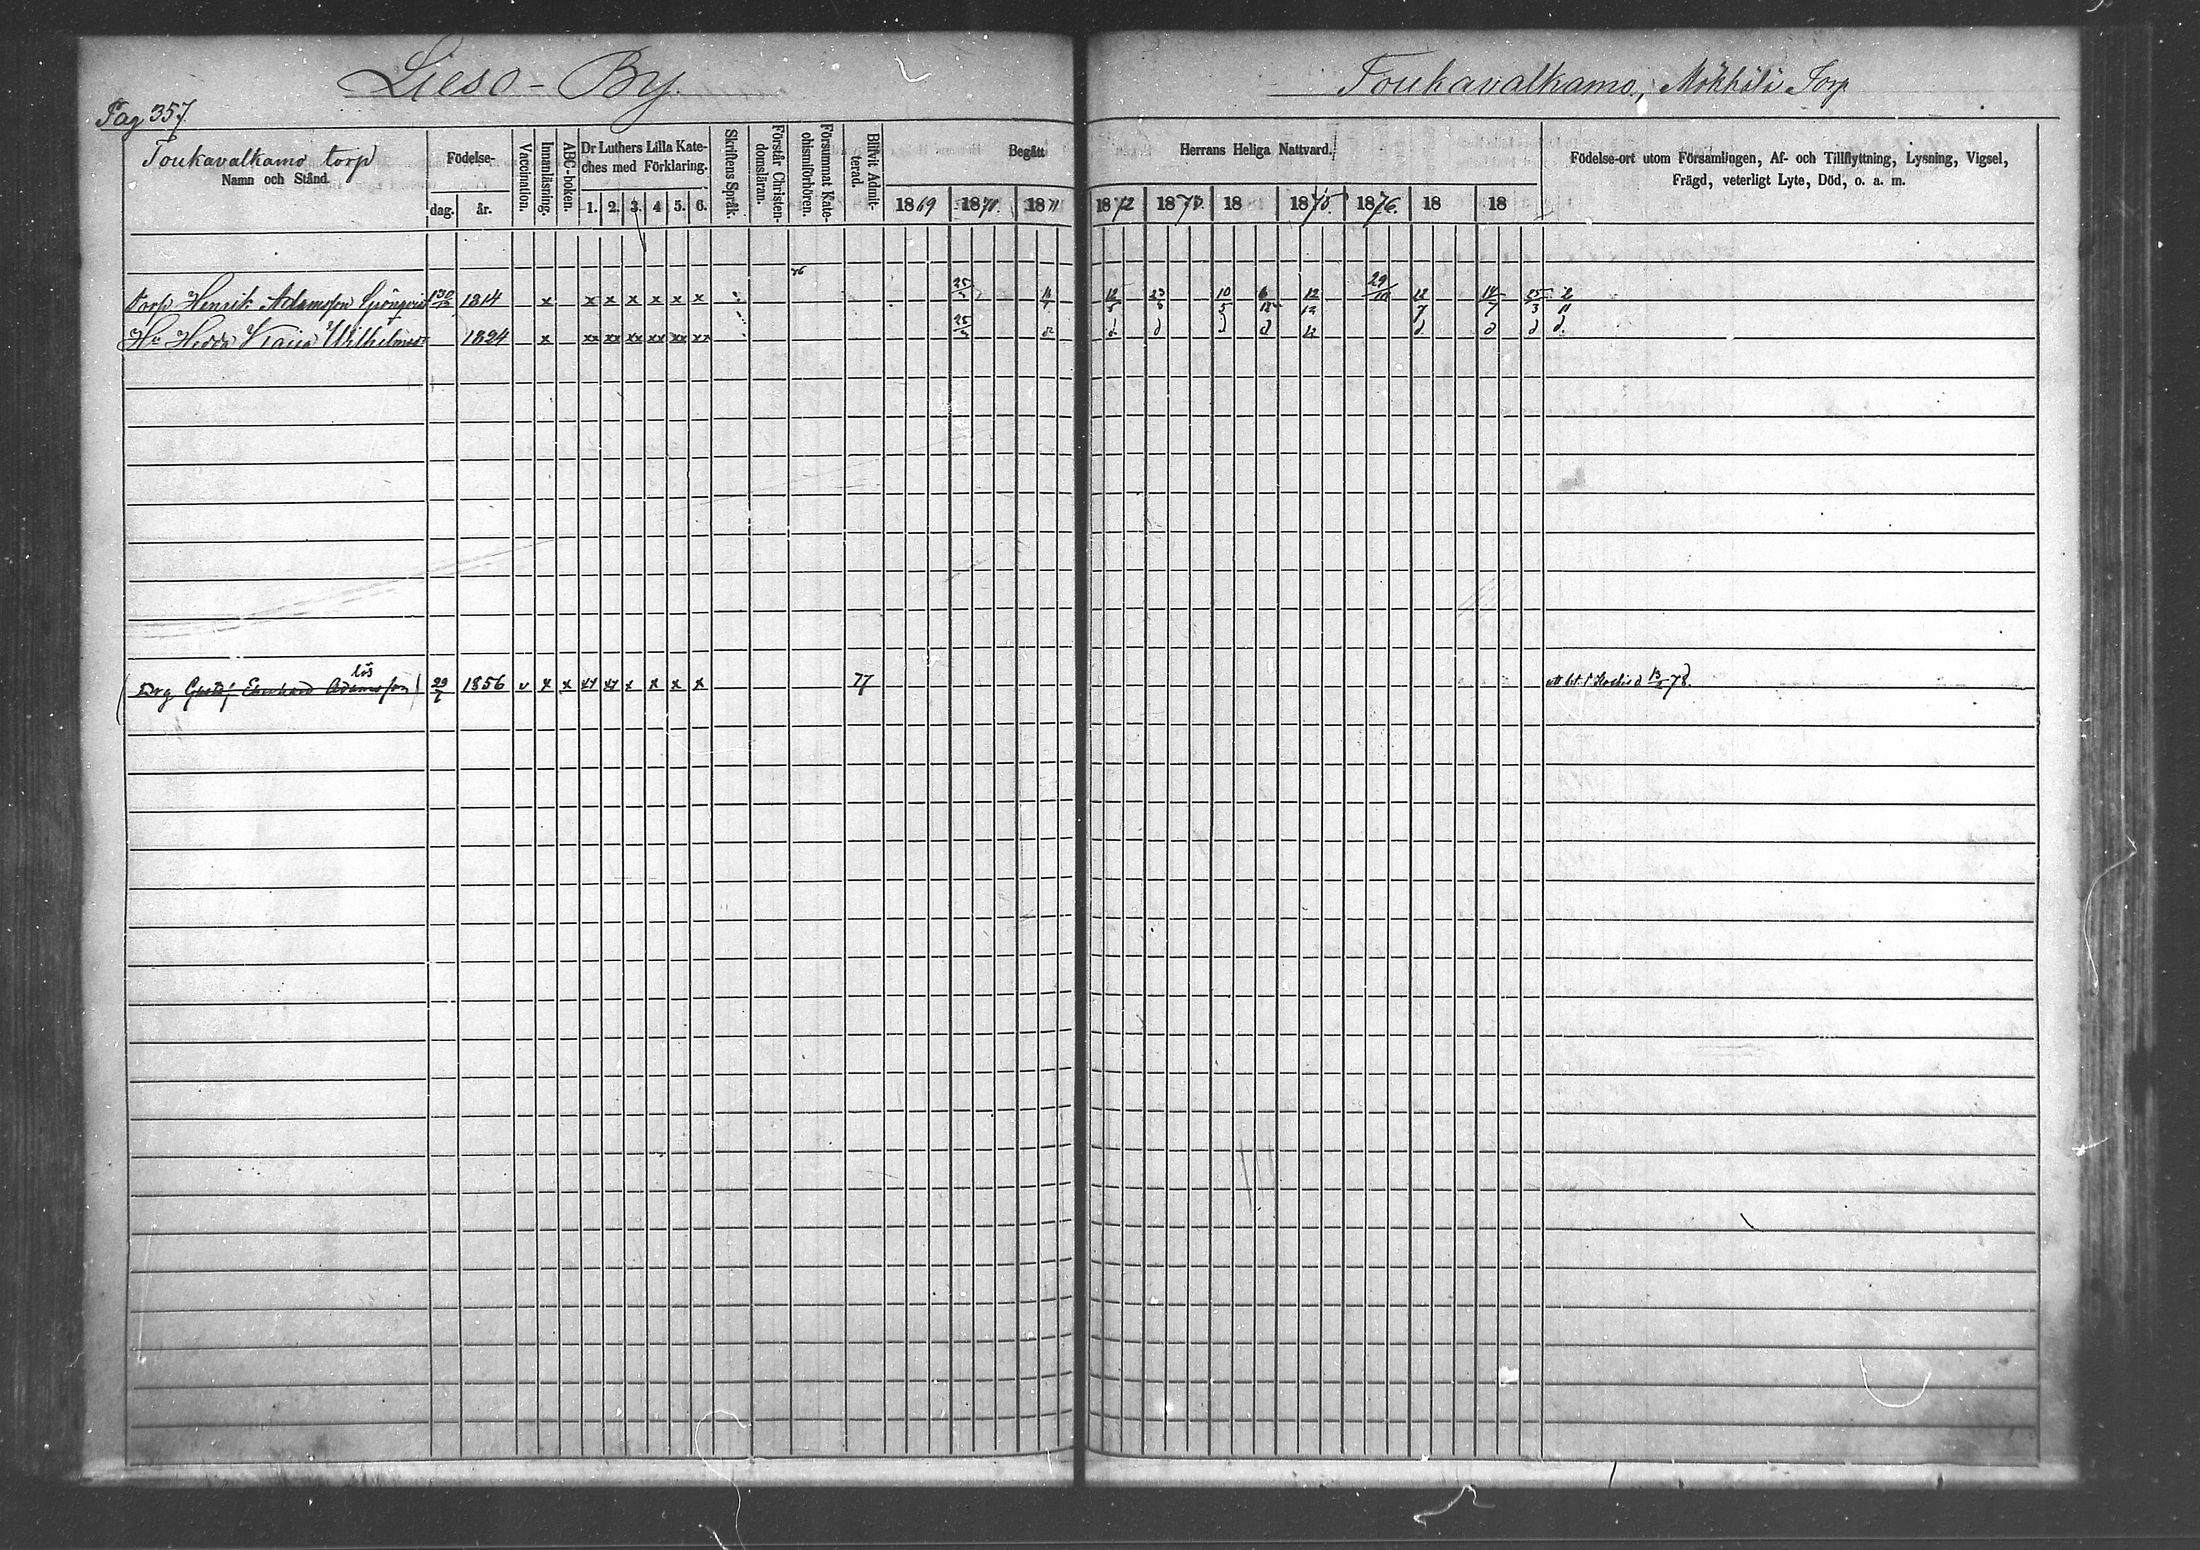 Lieso - By.
Toukavalkamo, Mökkölö Torp
Pag 357.
Toukavalkamo torp
Namn och Stånd.
Födelse-
dag. år.
Vaccination.
Innanläsning.
ABC-boken.
Dr Luthers Lilla Kate-
ches med Förklaring.
1. 2. 3. 4 5. 6.
Skriftens Språk.
Förstår Christen-
domsläran.
Försummat Kate-
chismiförhören.
Blifvit Admit-
terad.
Begått
Herrans Heliga Nattvard.
1869 1870. 1871 1872 1873. 18 1875. 1876. 18 18
Födelse-ort utom Församlingen, Af- och Tillflyttning, Lysning, Vigsel,
Frägd, veterligt Lyte, Död, o. a. m.
76
Torp Henrik Adamsson 30/12 1814 x x x x x x x 12/5 23/5 10/5 6/12 12/12 29/10 12/7 18/7 25/3
Hu Hedda Kaisa Wilhelmsdr 1824 x xx xx xx xx xx xx d d d d 12 d. d d d.
lös
Drg Gustaf Eberhard Adamsson 29/7 1856 v x x xx xx x x x x 77 13/2 78.